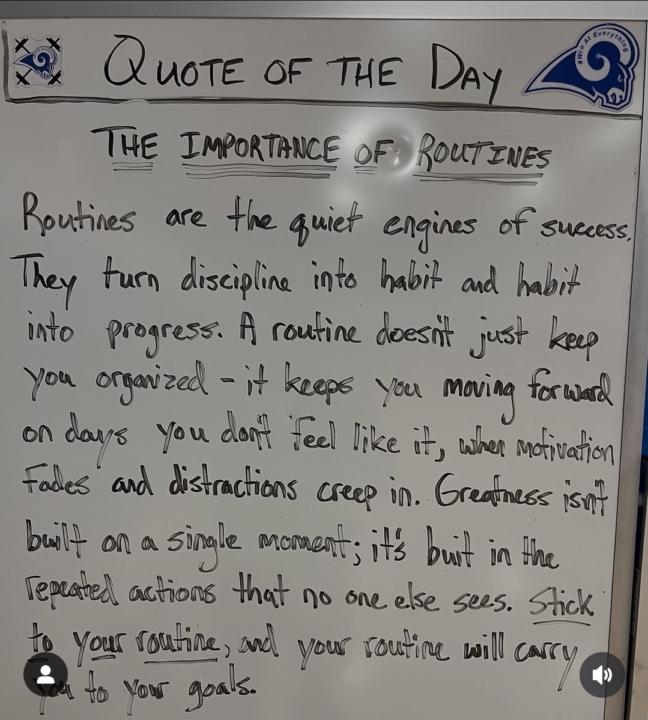 QUOTE OF THE DAY
#Win At Everything
THE IMPORTANCE OF ROUTINES
Routines are the quiet engines of success.
They turn discipline into habit and habit
into progress. A routine doesn't just keep
you organized - it keeps you moving forward
on days you don't feel like it, when motivation
fades and distractions creep in. Greatness isn't
built on a single moment; it's buit in the
repeated actions that no one else sees. Stick
to your routine, and your routine will carry
you to your goals.